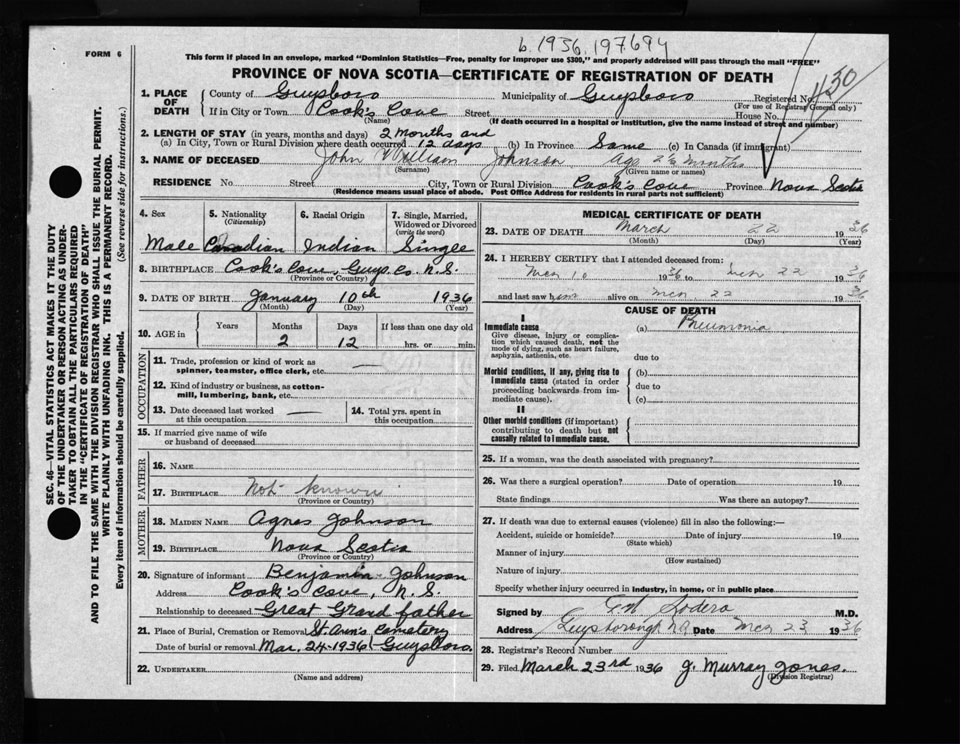 b. 1936. 197694
FORM 6
This form if placed in an envelope, marked "Dominion Statistics—Free, penalty for improper use $300," and properly addressed will pass through the mail "FREE"
PROVINCE OF NOVA SCOTIA—CERTIFICATE OF REGISTRATION OF DEATH
430
1. PLACE OF DEATH
County of Guysboro Municipality of Guysboro Registered No.
(For use of Registrar General only)
If in City or Town Cook's Cove Street House No.
(Name) (If death occurred in a hospital or institution, give the name instead of street and number)
2. LENGTH OF STAY (in years, months and days) 2 months and
(a) In City, Town or Rural Division where death occurred 12 days (b) In Province Same (c) In Canada (if immigrant)
3. NAME OF DECEASED John William Johnson Age 2½ months
(Surname) (Given name or names)
RESIDENCE No. Street City, Town or Rural Division Cook's Cove Province Nova Scotia
(Residence means usual place of abode. Post Office Address for residents in rural parts not sufficient)
SEC. 46—VITAL STATISTICS ACT MAKES IT THE DUTY
OF THE UNDERTAKER OR PERSON ACTING AS UNDER-
TAKER TO OBTAIN ALL THE PARTICULARS REQUIRED
IN THE "CERTIFICATE OF REGISTRATION OF DEATH"
AND TO FILE THE SAME WITH THE DIVISION REGISTRAR WHO SHALL ISSUE THE BURIAL PERMIT.
WRITE PLAINLY WITH UNFADING INK. THIS IS A PERMANENT RECORD.
Every item of information should be carefully supplied. (See reverse side for instructions.)
4. Sex
Male
5. Nationality
(Citizenship)
Canadian
6. Racial Origin
Indian
7. Single, Married,
Widowed or Divorced
(write the word)
Single
8. BIRTHPLACE Cook's Cove, Guys. Co. N.S.
(Province or Country)
9. DATE OF BIRTH January 10th 1936
(Month) (Day) (Year)
10. AGE in
Years Months Days If less than one day old
2 12 hrs. or min.
OCCUPATION
11. Trade, profession or kind of work as
spinner, teamster, office clerk, etc. —
12. Kind of industry or business, as cotton-
mill, lumbering, bank, etc.
13. Date deceased last worked
at this occupation —
14. Total yrs. spent in
this occupation
15. If married give name of wife
or husband of deceased
FATHER
16. NAME
17. BIRTHPLACE Not known
(Province or Country)
MOTHER
18. MAIDEN NAME Agnes Johnson
19. BIRTHPLACE Nova Scotia
(Province or Country)
20. Signature of informant Benjamin Johnson
Address Cook's Cove, N.S.
Relationship to deceased Great Grand father
21. Place of Burial, Cremation or Removal St. Ann's Cemetery
Date of burial or removal Mar. 24-1936 Guysboro.
22. UNDERTAKER
(Name and address)
MEDICAL CERTIFICATE OF DEATH
23. DATE OF DEATH March 22 1936
(Month) (Day) (Year)
24. I HEREBY CERTIFY that I attended deceased from:
Mch 10 1936 to Mch 22 1936
and last saw him alive on Mch. 22 1936
CAUSE OF DEATH
I
Immediate cause (a) Pneumonia
Give disease, injury or complica-
tion which caused death, not the
mode of dying, such as heart failure,
asphyxia, asthenia, etc.
due to
Morbid conditions, if any, giving rise to
immediate cause (stated in order
proceeding backwards from im-
mediate cause).
(b)
due to
(c)
II
Other morbid conditions (if important)
contributing to death but not
causally related to immediate cause.
25. If a woman, was the death associated with pregnancy?
26. Was there a surgical operation? Date of operation 19
State findings Was there an autopsy?
27. If death was due to external causes (violence) fill in also the following:—
Accident, suicide or homicide? Date of injury 19
(State which)
Manner of injury
(How sustained)
Nature of injury
Specify whether injury occurred in industry, in home, or in public place
Signed by Sodero M.D.
Address Guysborough N.S. Date Mch 23 1936
28. Registrar's Record Number
29. Filed March 23rd 1936 J. Murray Jones.
(Division Registrar)